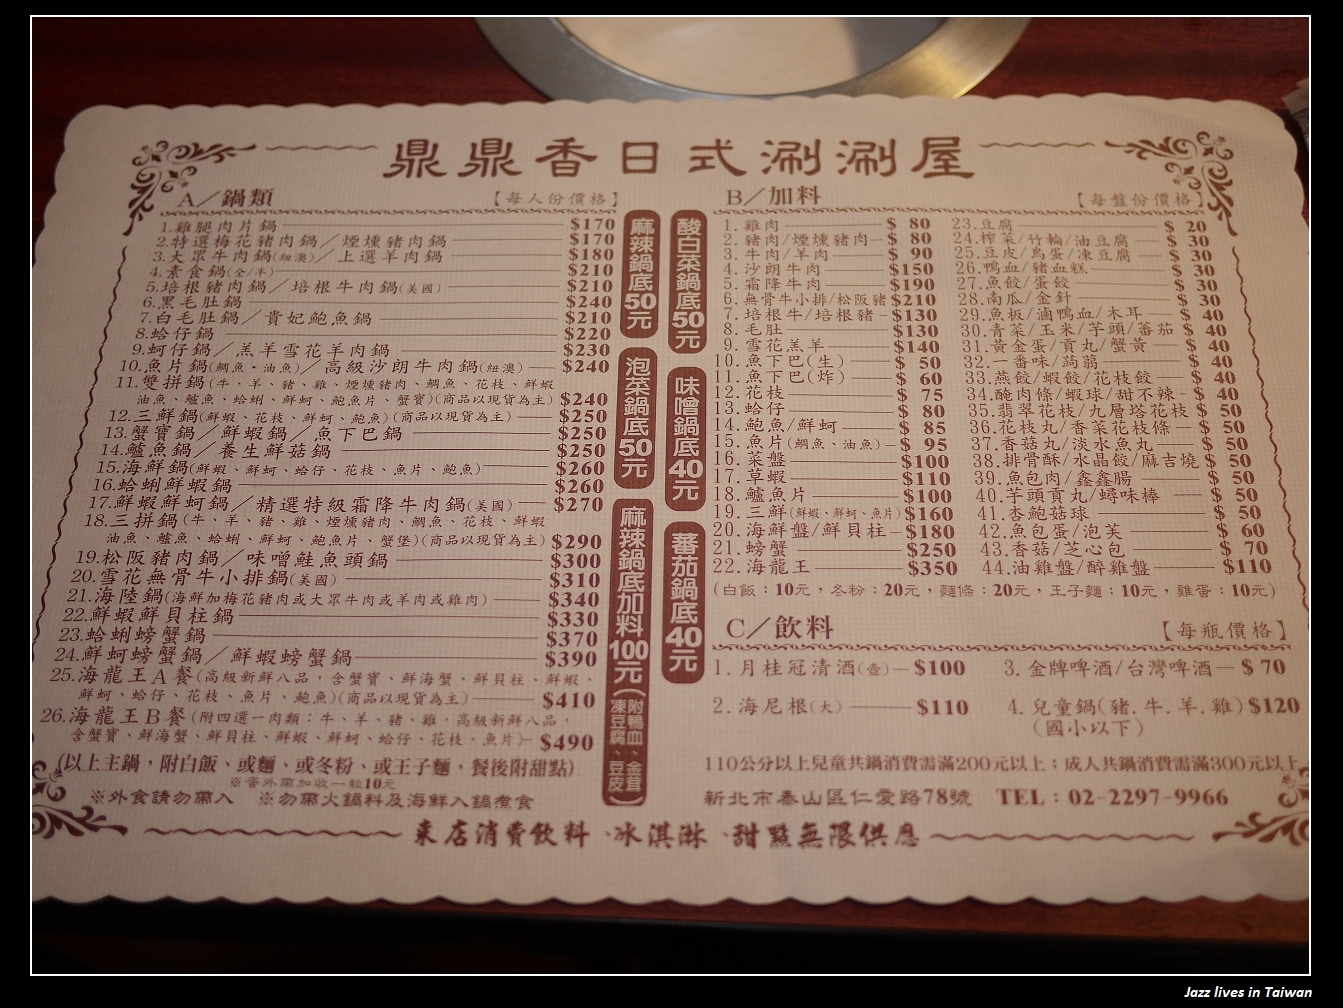 鼎鼎香日式涮涮屋
A／鍋類 【每人份價格】
1.雞腿肉片鍋 $170
2.特選梅花豬肉鍋／煙燻豬肉鍋 $170
3.大眾牛肉鍋(紐澳)／上選羊肉鍋 $180
4.素食鍋(全/半) $210
5.培根豬肉鍋／培根牛肉鍋(美國) $210
6.黑毛肚鍋 $240
7.白毛肚鍋／貴妃鮑魚鍋 $210
8.蛤仔鍋 $220
9.蚵仔鍋／羔羊雪花羊肉鍋 $230
10.魚片鍋(鯛魚·油魚)／高級沙朗牛肉鍋(紐澳) $240
11.雙拼鍋(牛、羊、豬、雞、煙燻豬肉、鯛魚、花枝、鮮蝦
油魚、鱸魚、蛤蜊、鮮蚵、鮑魚片、蟹寶)(商品以現貨為主) $240
12.三鮮鍋(鮮蝦、花枝、鮮蚵、鮑魚)(商品以現貨為主) $250
13.蟹寶鍋／鮮蝦鍋／魚下巴鍋 $250
14.鱸魚鍋／養生鮮菇鍋 $250
15.海鮮鍋(鮮蝦、鮮蚵、蛤仔、花枝、魚片、鮑魚) $260
16.蛤蜊鮮蝦鍋 $260
17.鮮蝦鮮蚵鍋／精選特級霜降牛肉鍋(美國) $270
18.三拼鍋(牛、羊、豬、雞、煙燻豬肉、鯛魚、花枝、鮮蝦
油魚、鱸魚、蛤蜊、鮮蚵、鮑魚片、蟹堡)(商品以現貨為主) $290
19.松阪豬肉鍋／味噌鮭魚頭鍋 $300
20.雪花無骨牛小排鍋(美國) $310
21.海陸鍋(海鮮加梅花豬肉或大眾牛肉或羊肉或雞肉) $340
22.鮮蝦鮮貝柱鍋 $330
23.蛤蜊螃蟹鍋 $370
24.鮮蚵螃蟹鍋／鮮蝦螃蟹鍋 $390
25.海龍王A餐(高級新鮮八品，含蟹寶、鮮海蟹、鮮貝柱、鮮蝦、
鮮蚵、蛤仔、花枝、魚片、鮑魚)(商品以現貨為主) $410
26.海龍王B餐(附四選一肉類：牛、羊、豬、雞，高級新鮮八品，
含蟹寶、鮮海蟹、鮮貝柱、鮮蝦、鮮蚵、蛤仔、花枝、魚片) $490
(以上主鍋，附白飯、或麵、或冬粉、或王子麵，餐後附甜點)
※蛋外需加收一粒10元
※外食請勿帶入 ※勿帶火鍋料及海鮮入鍋煮食
麻辣鍋底50元
泡菜鍋底50元
麻辣鍋底加料100元(附鴨血、金茸、凍豆腐、豆皮)
酸白菜鍋底50元
味噌鍋底40元
蕃茄鍋底40元
B／加料 【每盤份價格】
1.雞肉 $80
2.豬肉/煙燻豬肉 $80
3.牛肉/羊肉 $90
4.沙朗牛肉 $150
5.霜降牛肉 $190
6.無骨牛小排/松阪豬 $210
7.培根牛/培根豬 $130
8.毛肚 $130
9.雪花羔羊 $140
10.魚下巴(生) $50
11.魚下巴(炸) $60
12.花枝 $75
13.蛤仔 $80
14.鮑魚/鮮蚵 $85
15.魚片(鯛魚·油魚) $95
16.菜盤 $100
17.草蝦 $110
18.鱸魚片 $100
19.三鮮(鮮蝦、鮮蚵、魚片) $160
20.海鮮盤/鮮貝柱 $180
21.螃蟹 $250
22.海龍王 $350
23.豆腐 $20
24.榨菜/竹輪/油豆腐 $30
25.豆皮/鳥蛋/凍豆腐 $30
26.鴨血/豬血糕 $30
27.魚餃/蛋餃 $30
28.南瓜/金針 $30
29.魚板/滷鴨血/木耳 $40
30.青菜/玉米/芋頭/蕃茄 $40
31.黃金蛋/貢丸/蟹黃 $40
32.一番味/蒟蒻 $40
33.燕餃/蝦餃/花枝餃 $40
34.醃肉條/蝦球/甜不辣 $40
35.翡翠花枝/九層塔花枝 $50
36.花枝丸/香菜花枝條 $50
37.香菇丸/淡水魚丸 $50
38.排骨酥/水晶餃/麻吉燒 $50
39.魚包肉/鑫鑫腸 $50
40.芋頭貢丸/蟳味棒 $50
41.杏鮑菇球 $50
42.魚包蛋/泡芙 $60
43.香菇/芝心包 $70
44.油雞盤/醉雞盤 $110
(白飯：10元，冬粉：20元，麵條：20元，王子麵：10元，雞蛋：10元)
C／飲料 【每瓶價格】
1.月桂冠清酒(壺) $100
2.海尼根(大) $110
3.金牌啤酒/台灣啤酒 $70
4.兒童鍋(豬.牛.羊.雞) $120
(國小以下)
110公分以上兒童共鍋消費需滿200元以上；成人共鍋消費需滿300元以上
新北市泰山區仁愛路78號 TEL：02-2297-9966
來店消費飲料、冰淇淋、甜點無限供應
Jazz lives in Taiwan